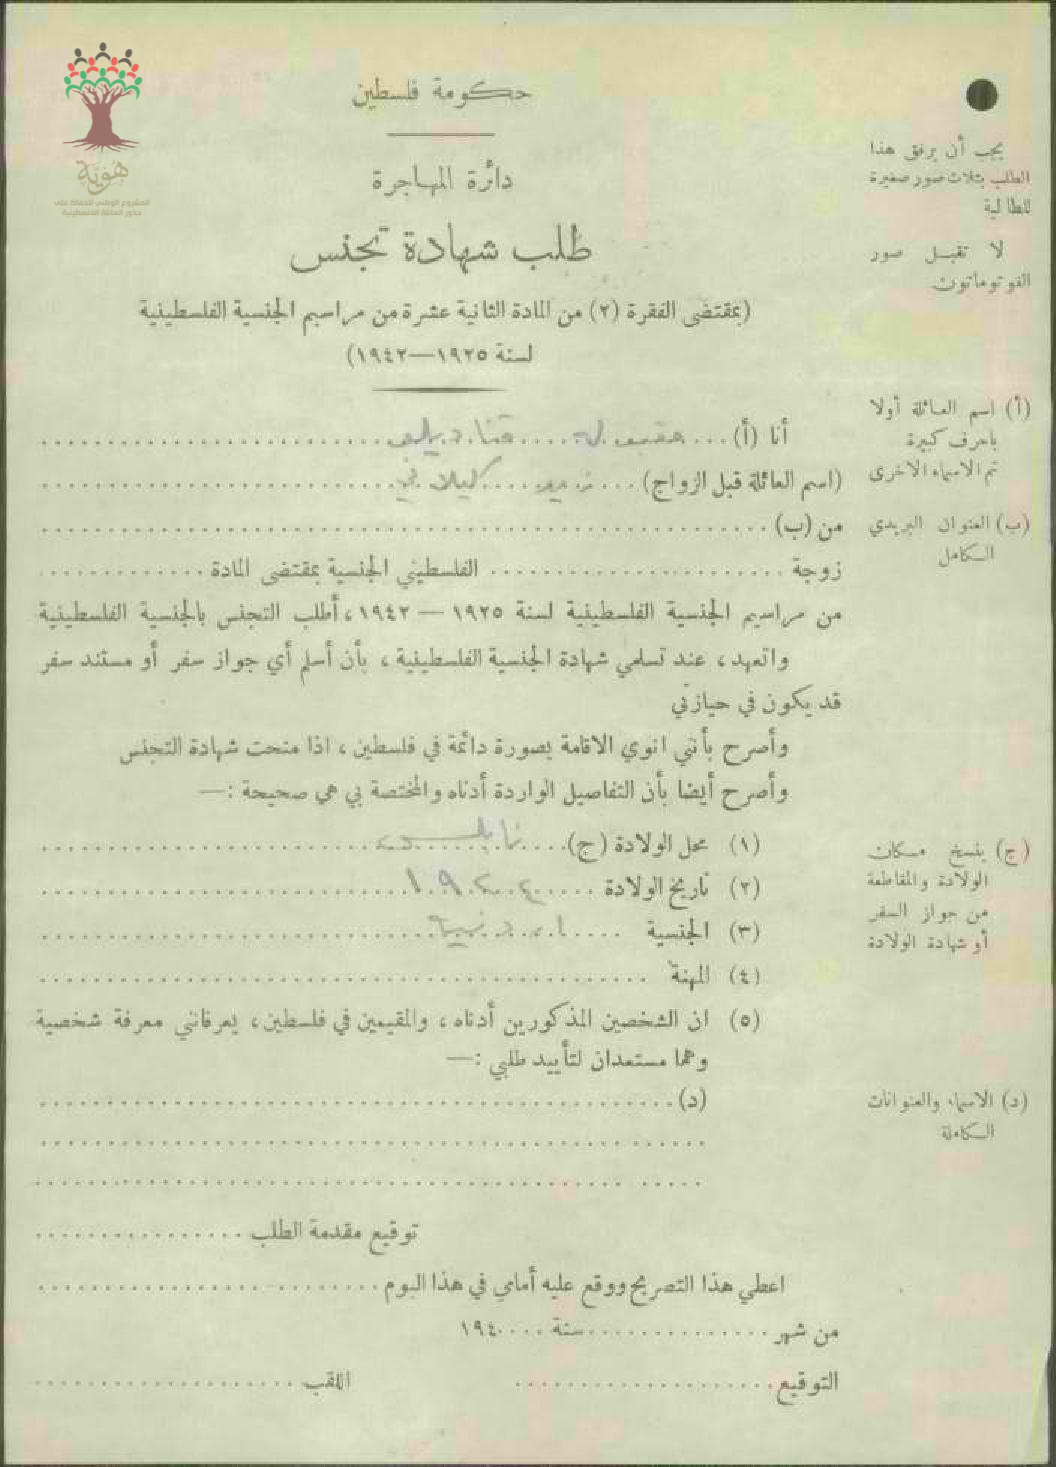 هوية
المشروع الوطني للحفاظ على
جذور العائلة الفلسطينية
حكومة فلسطين
دائرة المهاجرة
طلب شهادة تجنس
(بمقتضى الفقرة (٢) من المادة الثانية عشرة من مراسيم الجنسية الفلسطينية
لسنة ١٩٢٥—١٩٤٢)
يجب أن يرفق هذا
الطلب بثلاث صور صغيرة
للطالبة
لا تقبل صور
الفوتوماتون
أنا (أ)
(اسم العائلة قبل الزواج) كيلاني
من (ب)
زوجة الفلسطيني الجنسية بمقتضى المادة
من مراسيم الجنسية الفلسطينية لسنة ١٩٢٥ — ١٩٤٢، أطلب التجنس بالجنسية الفلسطينية
واتعهد، عند تسلمي شهادة الجنسية الفلسطينية، بأن أسلم أي جواز سفر أو مستند سفر
قد يكون في حيازتي
وأصرح بأنني انوي الاقامة بصورة دائمة في فلسطين، اذا منحت شهادة التجنس
وأصرح أيضا بأن التفاصيل الواردة أدناه والمختصة بي هي صحيحة :—
(أ) اسم العائلة أولا
باحرف كبيرة
ثم الاسماء الاخرى
(ب) العنوان البريدي
الكامل
(١) محل الولادة (ج) نابلس
(٢) تاريخ الولادة
(٣) الجنسية
(٤) المهنة
(٥) ان الشخصين المذكورين أدناه، والمقيمين في فلسطين، يعرفانني معرفة شخصية
وهما مستعدان لتأييد طلبي :—
(د)
(ج) ينسخ مكان
الولادة والمقاطعة
من جواز السفر
أو شهادة الولادة
(د) الاسماء والعنوانات
الكاملة
توقيع مقدمة الطلب
اعطي هذا التصريح ووقع عليه أمامي في هذا اليوم
من شهر سنة ١٩٤٠
التوقيع اللقب